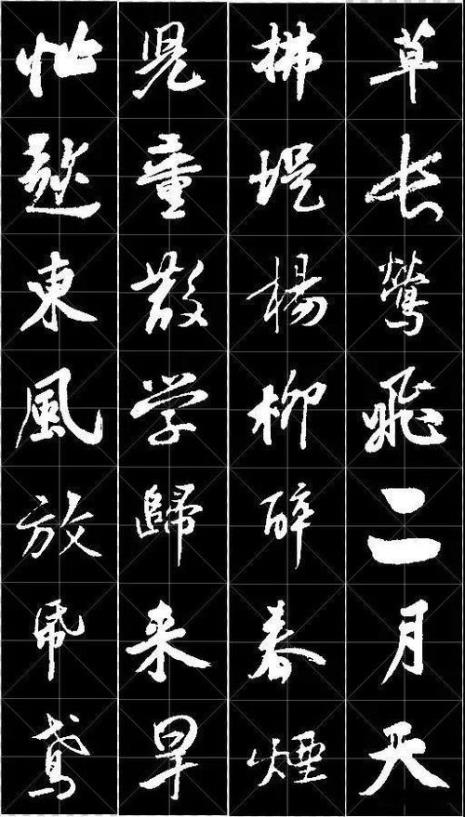 草长鶯飛二月天
拂堤楊柳醉春煙
児童散学歸来早
忙趂東風放帋鳶